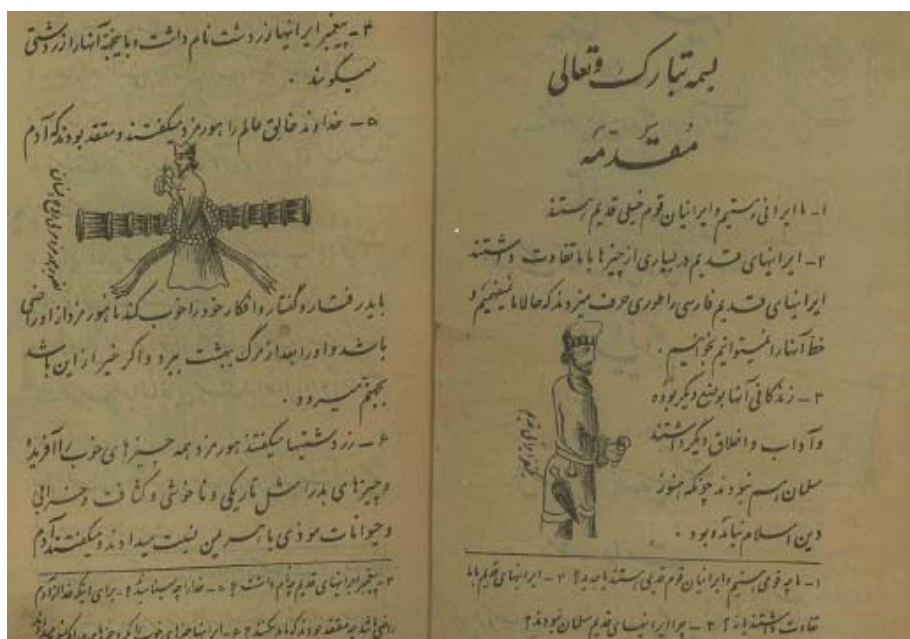 بسمه تبارک و تعالی
مُقدّمَه
۱- ما ایرانی هستیم و ایرانیان قوم خیلی قدیم هستند
۲- ایرانیهای قدیم در بسیاری از چیزها با ما تفاوت داشتند
ایرانیهای قدیم فارسی را طوری حرف میزدند که حالا ما نمیفهمیم و
خط آنها را نمیتوانیم بخوانیم .
۳- زندگانی آنها بوضع دیگر بوده
و آداب و اخلاق دیگر داشتند
مسلمان هم نبودند چونکه هنوز
دین اسلام نیامده بود .
۱- ما چه قومی هستیم و ایرانیان قوم قدیمی هستند یا جدید؟ ۲- ایرانیهای قدیم با ما
تفاوت داشتند یا نه؟ ۳- چرا ایرانیهای قدیم مسلمان نبودند؟
۴- پیغمبر ایرانیها زردشت نام داشت و باینجهة آنها را زردشتی
میگویند .
۵- خداوند خالق عالم را هورمزد میگفتند و معتقد بودند که آدم
باید رفتار و گفتار و افکار خود را خوب کند تا هورمزد از او راضی
باشد و او را بعد از مرگ ببهشت ببرد و اگر غیر از این باشد
بجهنم میرود .
۶- زردشتیها میگفتند هورمزد همه چیزهای خوب را آفریده
و چیزهای بد را مثل تاریکی و ناخوشی و کثافت و خرابی
و حیوانات موذی باهریمن نسبت میدادند و میگفتند آدم
۴- پیغمبر ایرانیهای قدیم چه نام داشت؟ ۵- خدا را چه مینامیدند؟ - برای اینکه خدا از آدم
راضی باشد چه معتقد بودند که باید بکنند؟ ۶-